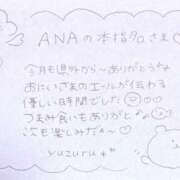 ANAの本指名さま♡
今月も県外から〜ありがとうな
おにいさまのエールが伝わる
優しい時間でした
つまみ食いもありがとな♡
次も楽しみだよ〜♡
yuzuru